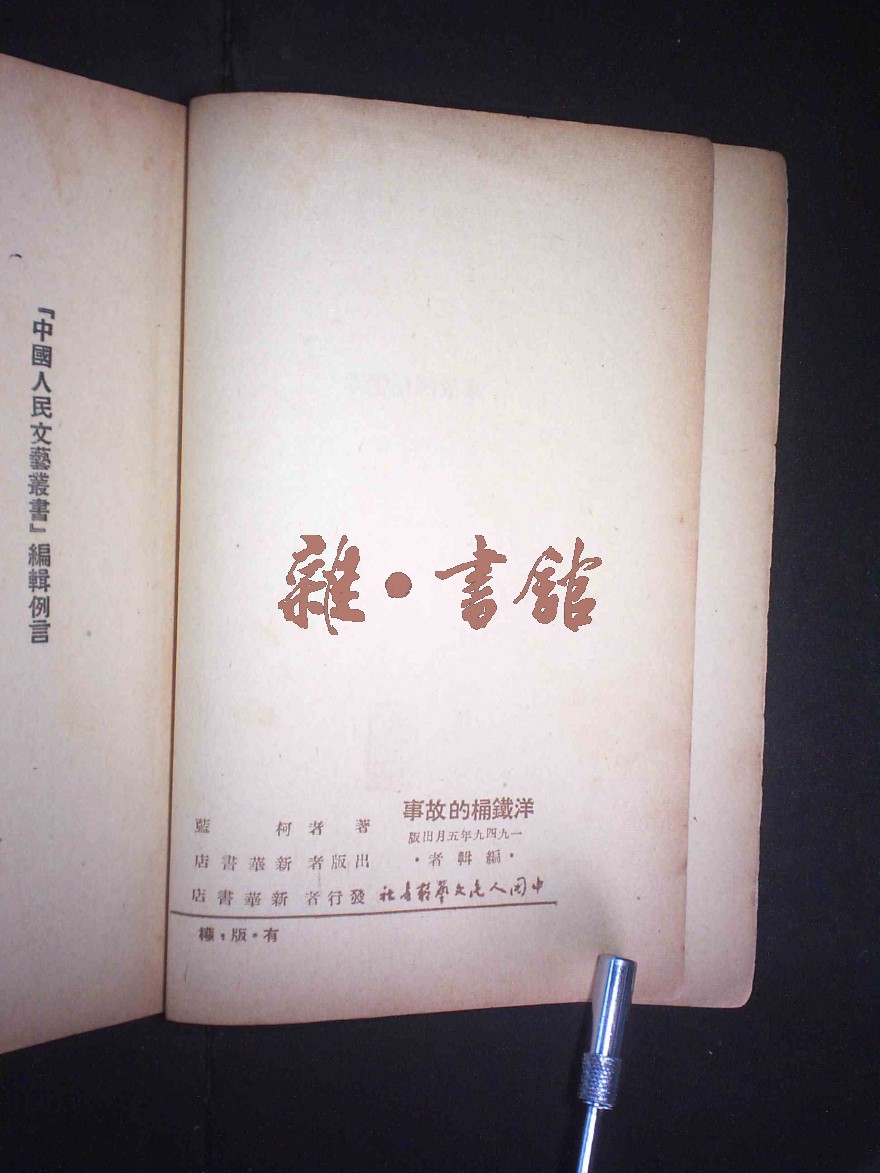 『中國人民文藝叢書』編輯例言
雜·書館
洋鐵桶的故事
一九四九年五月出版
·編輯者·
中国人民文藝叢書社
著者 柯藍
出版者 新華書店
發行者 新華書店
有·版·權